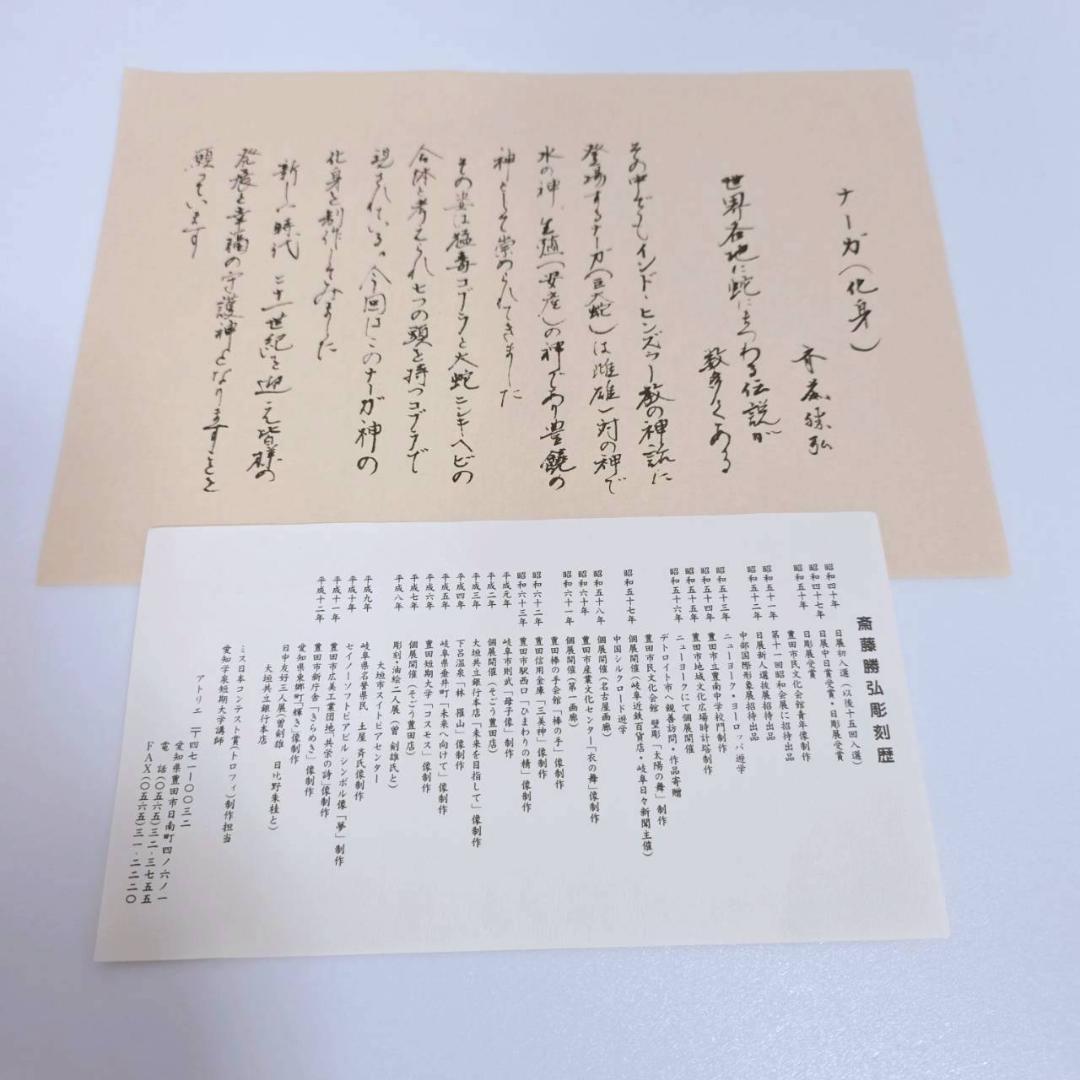 ナーガ(化身)
斉藤勝弘
世界各地に蛇にまつわる伝説が
数多くある
その中でもインド・ヒンズゥー教の神話に
登場するナーガ(巨大蛇)は雌雄一対の神で
水の神、生殖(安産)の神であり豊饒の
神として崇められてきました
その姿は猛毒コブラと大蛇ニシキヘビの
合体と考えられ七つの頭を持つコブラで
現されている。今回はこのナーガ神の
化身を制作してみました
新しい時代 二十一世紀を迎え皆様の
発展と幸福の守護神となりますことを
願っています
斎藤勝弘彫刻歴
昭和四十年 日展初入選(以後十五回入選)
昭和四十七年 日展中日賞受賞・日彫展受賞
日彫展受賞
昭和五十年 豊田市民文化会館青年像制作
第十一回昭和会展に招待出品
昭和五十一年 日展新人選抜展招待出品
昭和五十二年 中部国際形象展招待出品
ニューヨーク・ヨーロッパ遊学
昭和五十三年 豊田市立豊南中学校門制作
昭和五十四年 豊田市地域文化広場時計塔制作
昭和五十五年 ニューヨークにて個展開催
昭和五十六年 デトロイト市へ親善訪問・作品寄贈
豊田市民文化会館 壁彫「太陽の舞」制作
昭和五十七年 個展開催(岐阜近鉄百貨店・岐阜日々新聞主催)
中国シルクロード遊学
昭和五十八年 個展開催(名古屋画廊)
昭和六十年 豊田市産業文化センター「衣の舞」像制作
昭和六十一年 個展開催(第一画廊)
豊田棒の手会館「棒の手」像制作
昭和六十二年 豊田信用金庫「三美神」像制作
昭和六十三年 豊田市駅西口「ひまわりの精」像制作
平成元年 岐阜市則武「母子像」制作
平成二年 個展開催(そごう豊田店)
平成三年 大垣共立銀行本店「未来を目指して」像制作
平成四年 下呂温泉「林 羅山」像制作
平成五年 岐阜県垂井町「未来へ向けて」像制作
平成六年 豊田短期大学「コスモス」像制作
平成七年 個展開催(そごう豊田店)
平成八年 彫刻・油絵二人展(曽 剣雄氏と)
大垣市スイトピアセンター
平成九年 岐阜県名誉県民 土屋 斉氏像制作
平成十年 セイノーソフトピアビル シンボル像「夢」制作
平成十一年 豊田市広美工業団地「共学の詩」像制作
平成十二年 豊田市新庁舎「きらめき」像制作
愛知県東郷町「輝き」像制作
日中友好三人展(曽剣雄 日比野朱桂と)
大垣共立銀行本店
ミス日本コンテスト賞(トロフィ)制作担当
愛知学泉短期大学講師
アトリエ 〒四七一-〇〇三二
愛知県豊田市日南町四ノ六ノ一
電 話(〇五六五)三二-三七五五
FAX(〇五六五)三一-二二二〇